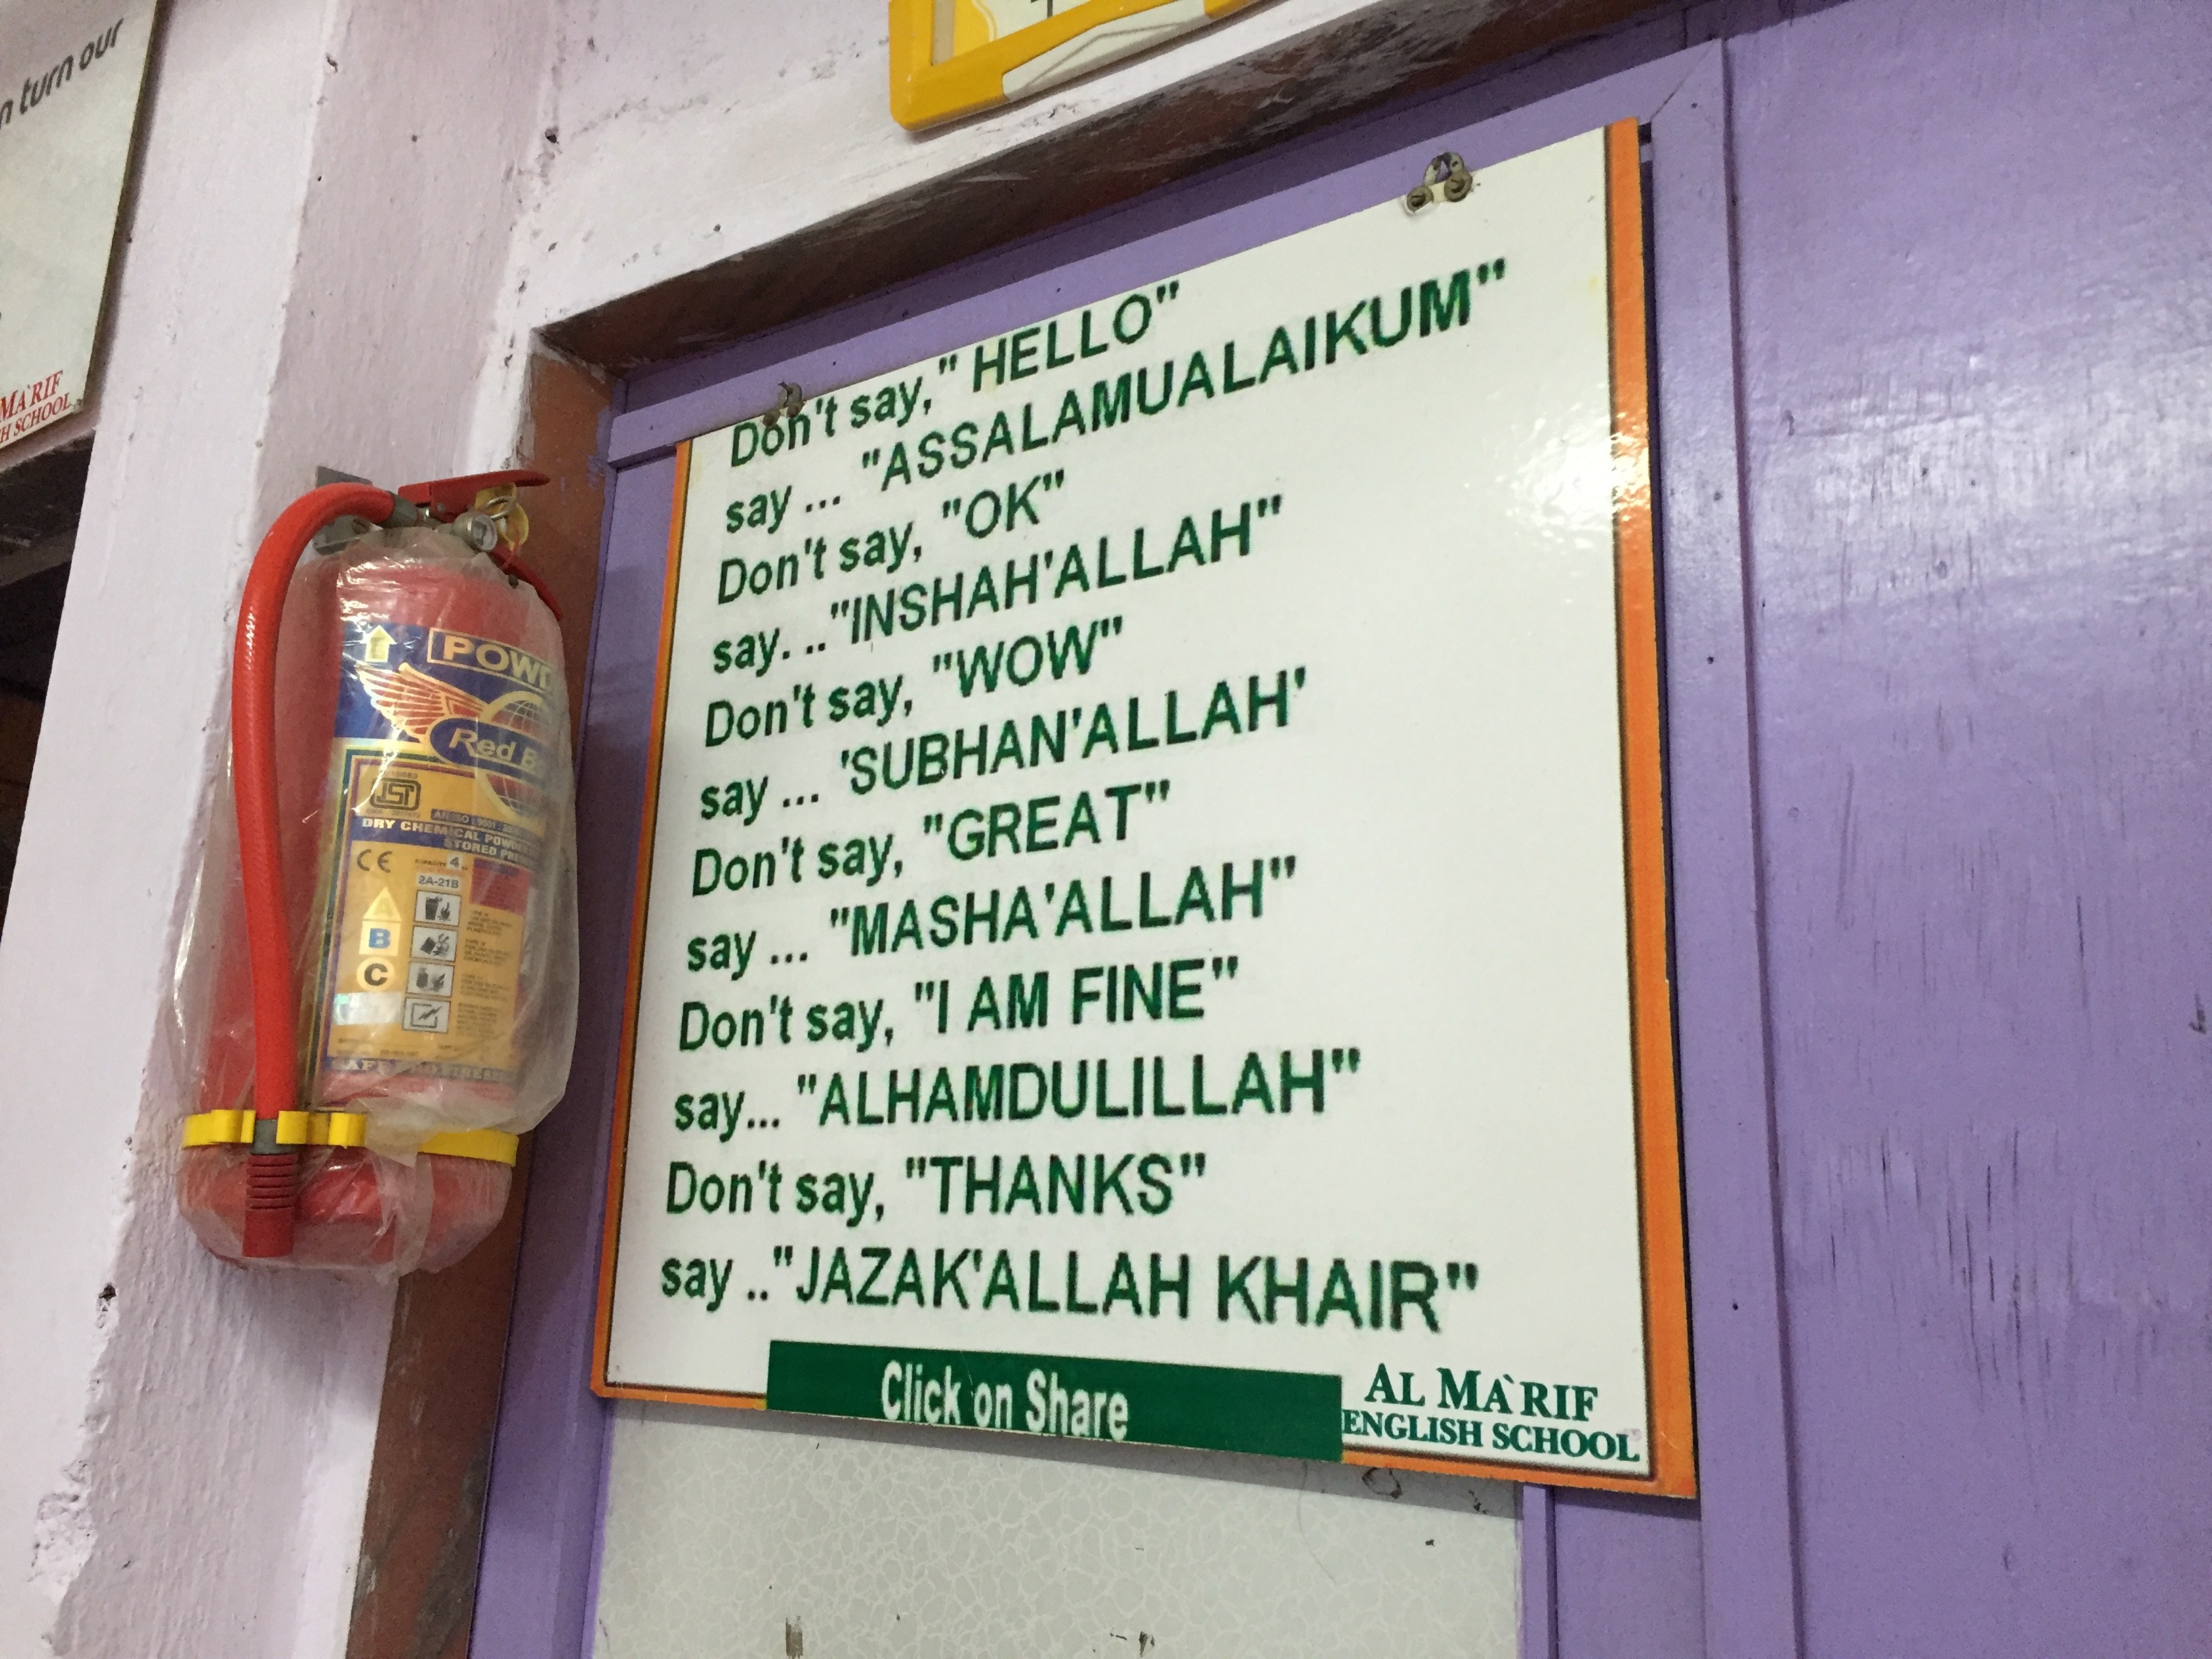 n turn our
MA`RIF
H SCHOOL
Don't say," HELLO"
say ... "ASSALAMUALAIKUM"
Don't say, "OK"
say. .."INSHAH'ALLAH"
Don't say, "WOW"
say ... 'SUBHAN'ALLAH'
Don't say, "GREAT"
say ... "MASHA'ALLAH"
Don't say, "I AM FINE"
say... "ALHAMDULILLAH"
Don't say, "THANKS"
say .."JAZAK'ALLAH KHAIR"
Click on Share
AL MA`RIF
ENGLISH SCHOOL
POWD
Red
DRY CHEMICAL POWD
STORED PRE
CE
CAPACITY 4
2A-21B
A
B
C